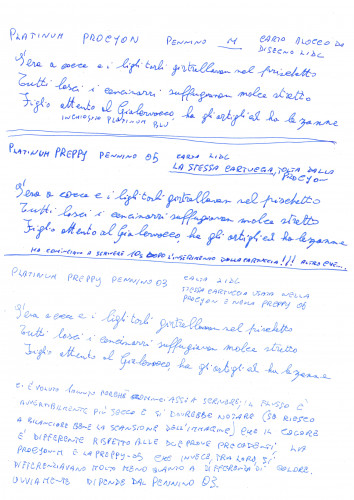 PLATINUM PROCYON PENNINO M CARTA BLOCCO DA
DISEGNO LIDL
S'era a cocce e i ligli torli girtrellavan nel pischetto
Tutti losci i cencinarri suffuggiavan molce stretto
Figlio attento al Gialervocco, ha gli artigli ed ha le zanne
INCHIOSTRO PLATINUM BLU
PLATINUM PREPPY PENNINO 05 CARTA LIDL
LA STESSA CARTUCCIA, TOLTA DALLA
PROCYON
S'era a cocce e i ligli torli girtrellavan nel pischetto
Tutti losci i cencinarri suffuggiavan molce stretto
Figlio attento al Gialervocco, ha gli artigli ed ha le zanne
HA COMINCIATO A SCRIVERE 10s DOPO L'INSERIMENTO DELLA CARTUCCIA!!!
PLATINUM PREPPY PENNINO 03 CARTA LIDL
STESSA CARTUCCIA USATA NELLA
PROCYON E NELLA PREPPY 05
S'era a cocce e i ligli torli girtrellavan nel pischetto
Tutti losci i cencinarri suffuggiavan molce stretto
Figlio attento al Gialervocco, ha gli artigli ed ha le zanne
CI È VOLUTO PERCHÉ ASSIA SCRIVERE, IL FLUSSO È
PIÙ SECCO E SI DOVREBBE NOTARE (SE RIESCO
A BILANCIARE BENE LA SCANSIONE DELL'IMMAGINE) CHE IL COLORE
È DIFFERENTE RISPETTO ALLE DUE PROVE PRECEDENTI. LA
PROCYON M E LA PREPPY 05 CHE INVECE, TRA LORO, SI
DIFFERENZIAVANO MOLTO MENO QUANTO A DIFFERENZA DI COLORE.
OVVIAMENTE DIPENDE DAL PENNINO 03.